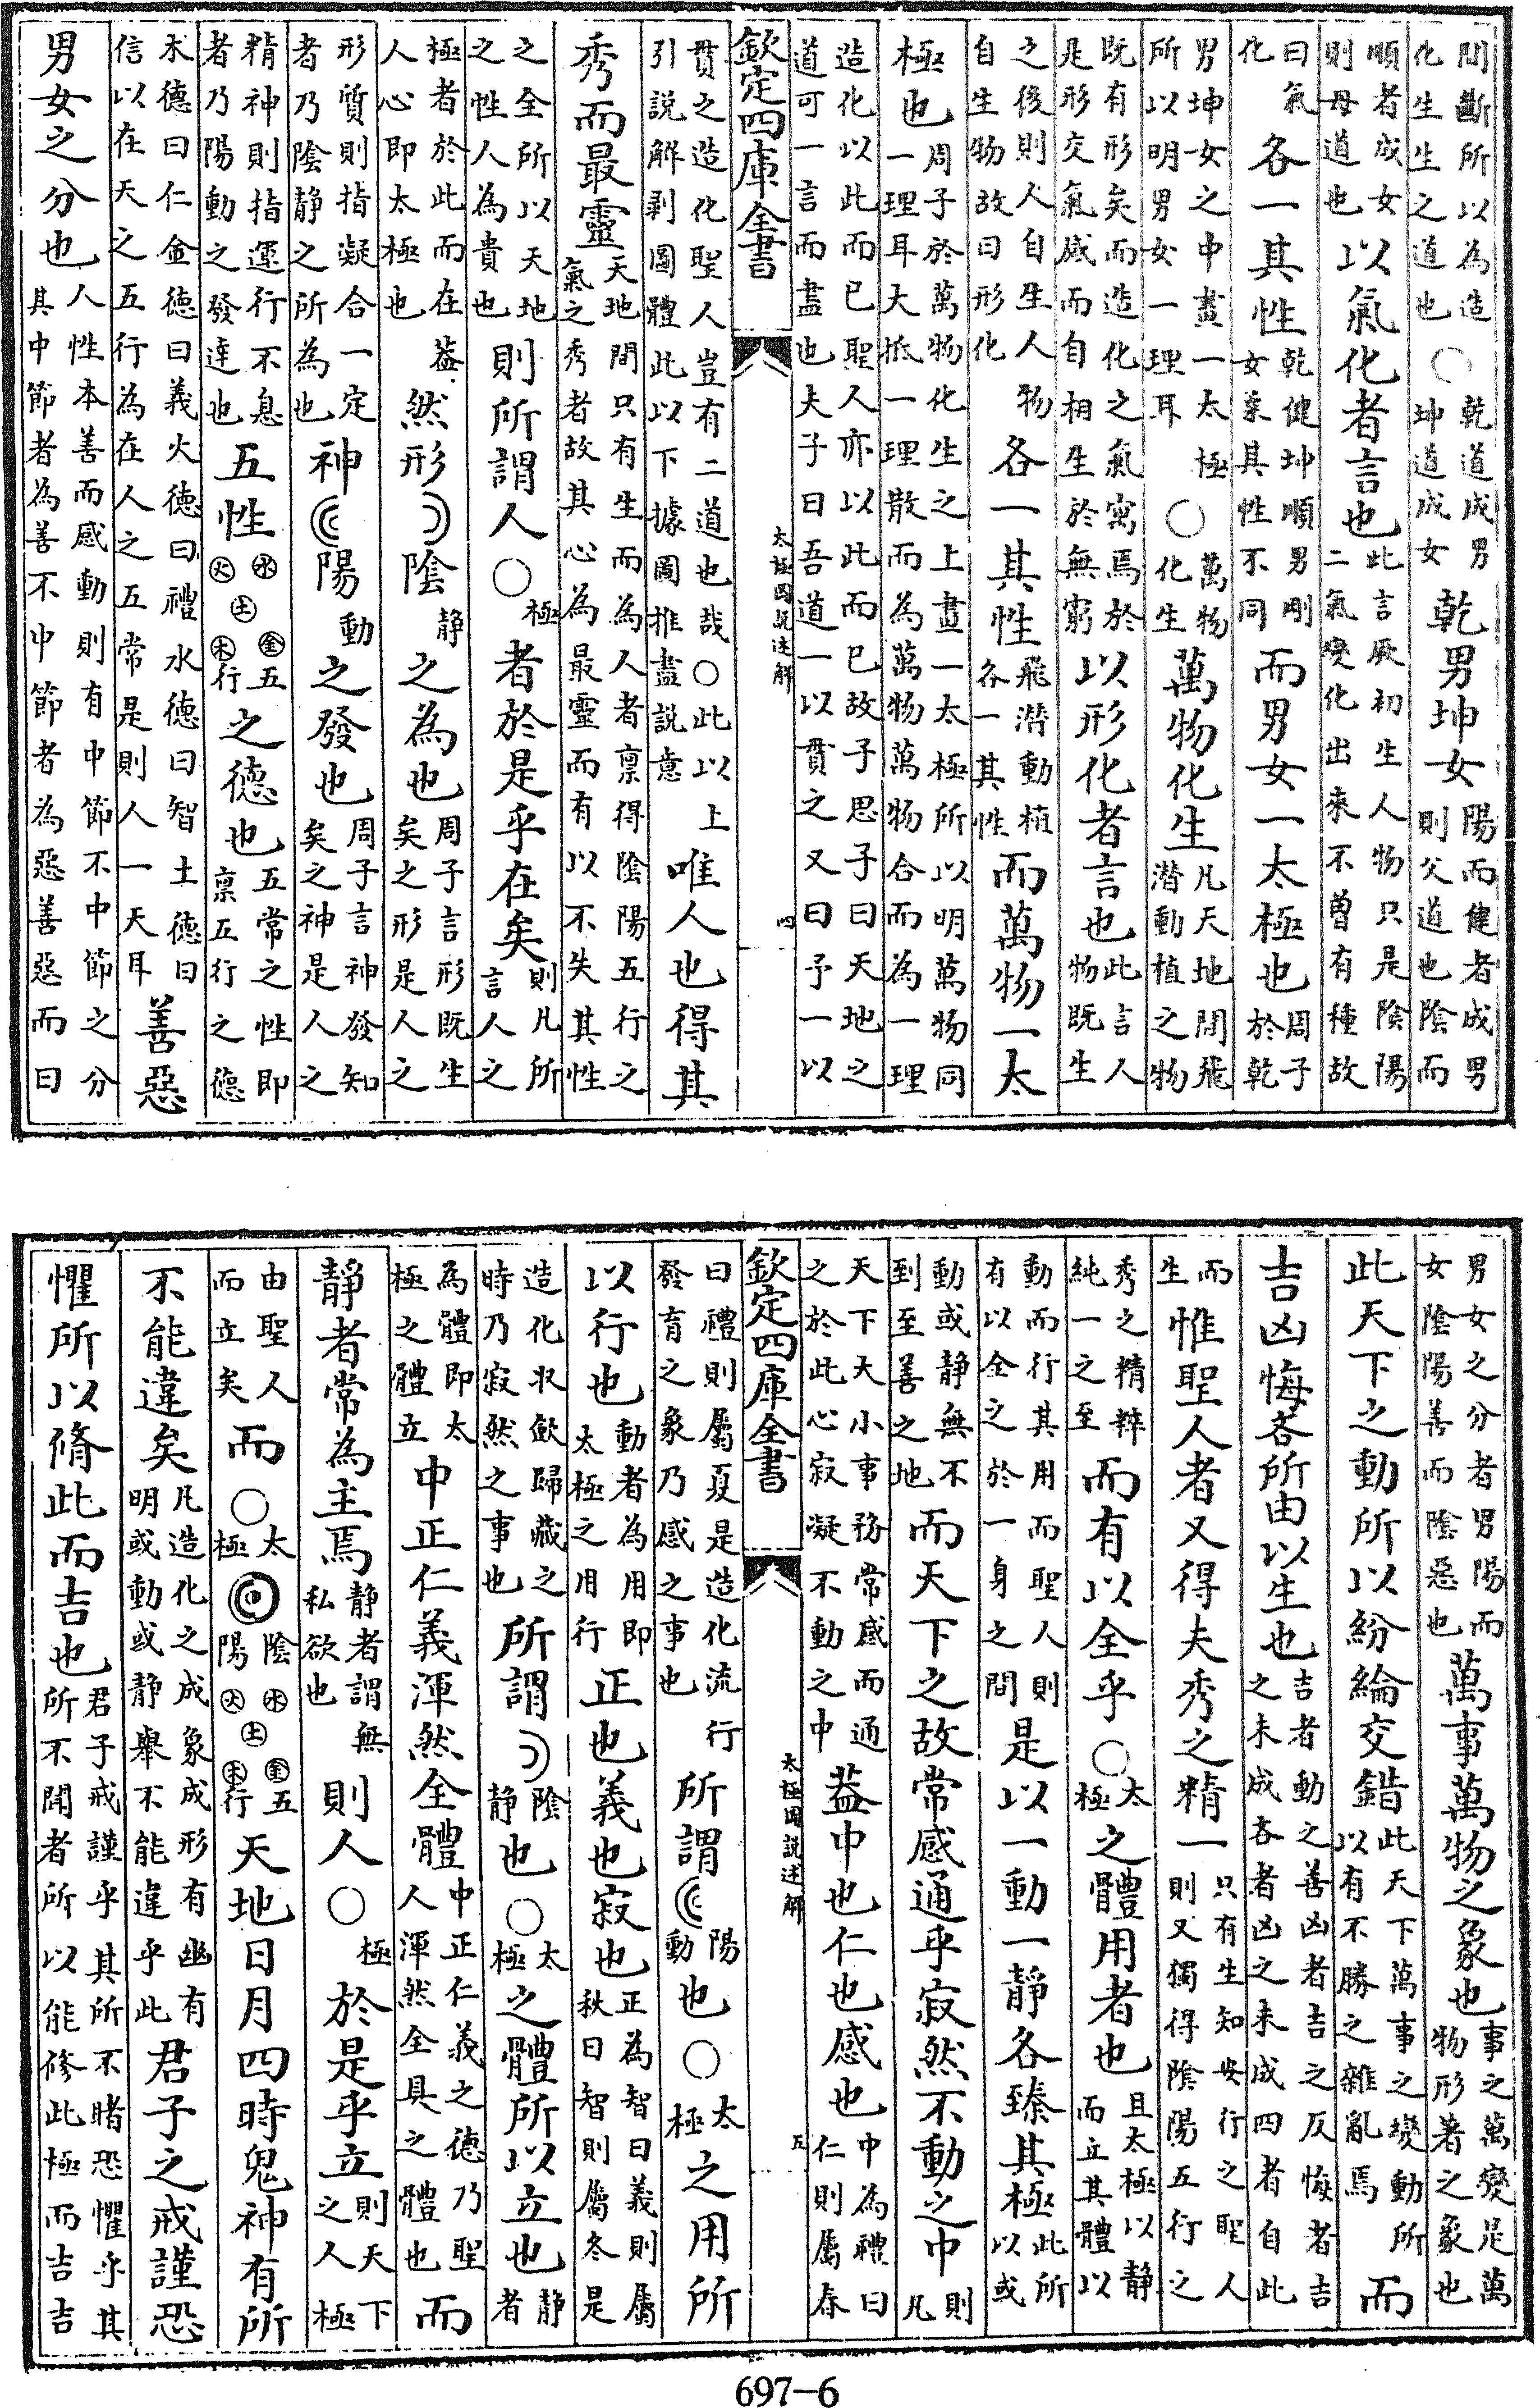 間斷所以為造化生生之道也○乾道成男坤道成女乾男坤女陽而健者成男則父道也陰而
順者成女則母道也以氣化者言也此言厥初生人物只是陰陽二氣變化出來不曽有種故
曰氣化各一其性乾健坤順男剛女柔其性不同而男女一太極也周子於乾
男坤女之中畫一太極所以明男女一理耳○萬物化生萬物化生凡天地間飛潛動植之物
既有形矣而造化之氣寓焉於是形交氣感而自相生於無窮以形化者言也此言人物既生
之後則人自生人物自生物故曰形化各一其性飛潛動植各一其性而萬物一太
極也周子於萬物化生之上畫一太極所以明萬物同一理耳大抵一理散而為萬物萬物合而為一理
造化以此而已聖人亦以此而已故子思子曰天地之道可一言而盡也夫子曰吾道一以貫之又曰予一以
欽定四庫全書 太極圖説述解 四
貫之造化聖人豈有二道也哉○此以上引説解剥圖體此以下據圖推盡説意唯人也得其
秀而最靈天地間只有生而為人者稟得陰陽五行之氣之秀者故其心為最靈而有以不失其性
之全所以天地之性人為貴也則所謂人○極者於是乎在矣則凡所言人之
極者於此而在葢人心即太極也然形陰静之為也周子言形既生矣之形是人之
形質則指凝合一定者乃陰静之所為也神陽動之發也周子言神發知矣之神是人之
精神則指運行不息者乃陽動之發達也五性水火土金木五行之德也五常之性即稟五行之德
木德曰仁金德曰義火德曰禮水德曰智土德曰信以在天之五行為在人之五常是則人一天耳善惡
男女之分也人性本善而感動則有中節不中節之分其中節者為善不中節者為惡善惡而曰
男女之分者男陽而女陰陽善而陰惡也萬事萬物之象也事之萬變是萬物形著之象也
此天下之動所以紛綸交錯此天下萬事之變動所以有不勝之雜亂焉而
吉凶悔吝所由以生也吉者動之善凶者吉之反悔者吉之未成吝者凶之未成四者自此
而生惟聖人者又得夫秀之精一只有生知安行之聖人則又獨得陰陽五行之
秀之精粹純一之至而有以全乎○太極之體用者也且太極以静而立其體以
動而行其用而聖人則有以全之於一身之間是以一動一静各臻其極此所以或
動或静無不到至善之地而天下之故常感通乎寂然不動之中則凡
天下大小事務常感而通之於此心寂凝不動之中葢中也仁也感也中為禮曰仁則屬春
欽定四庫全書 太極圖説述解 五
曰禮則屬夏是造化流行發育之象乃感之事也所謂陽動也○太極之用所
以行也動者為用即太極之用行正也義也寂也正為智曰義則屬秋曰智則屬冬是
造化收斂歸藏之時乃寂然之事也所謂陰静也○太極之體所以立也静者
為體即太極之體立中正仁義渾然全體中正仁義之德乃聖人渾然全具之體也而
静者常為主焉静者謂無私欲也則人○極於是乎立則天下之人極
由聖人而立矣而○太極陰陽水火土金木五行天地日月四時鬼神有所
不能違矣凡造化之成象成形有幽有明或動或静舉不能違乎此君子之戒謹恐
懼所以脩此而吉也君子戒謹乎其所不睹恐懼乎其所不聞者所以能修此極而吉吉
697-6